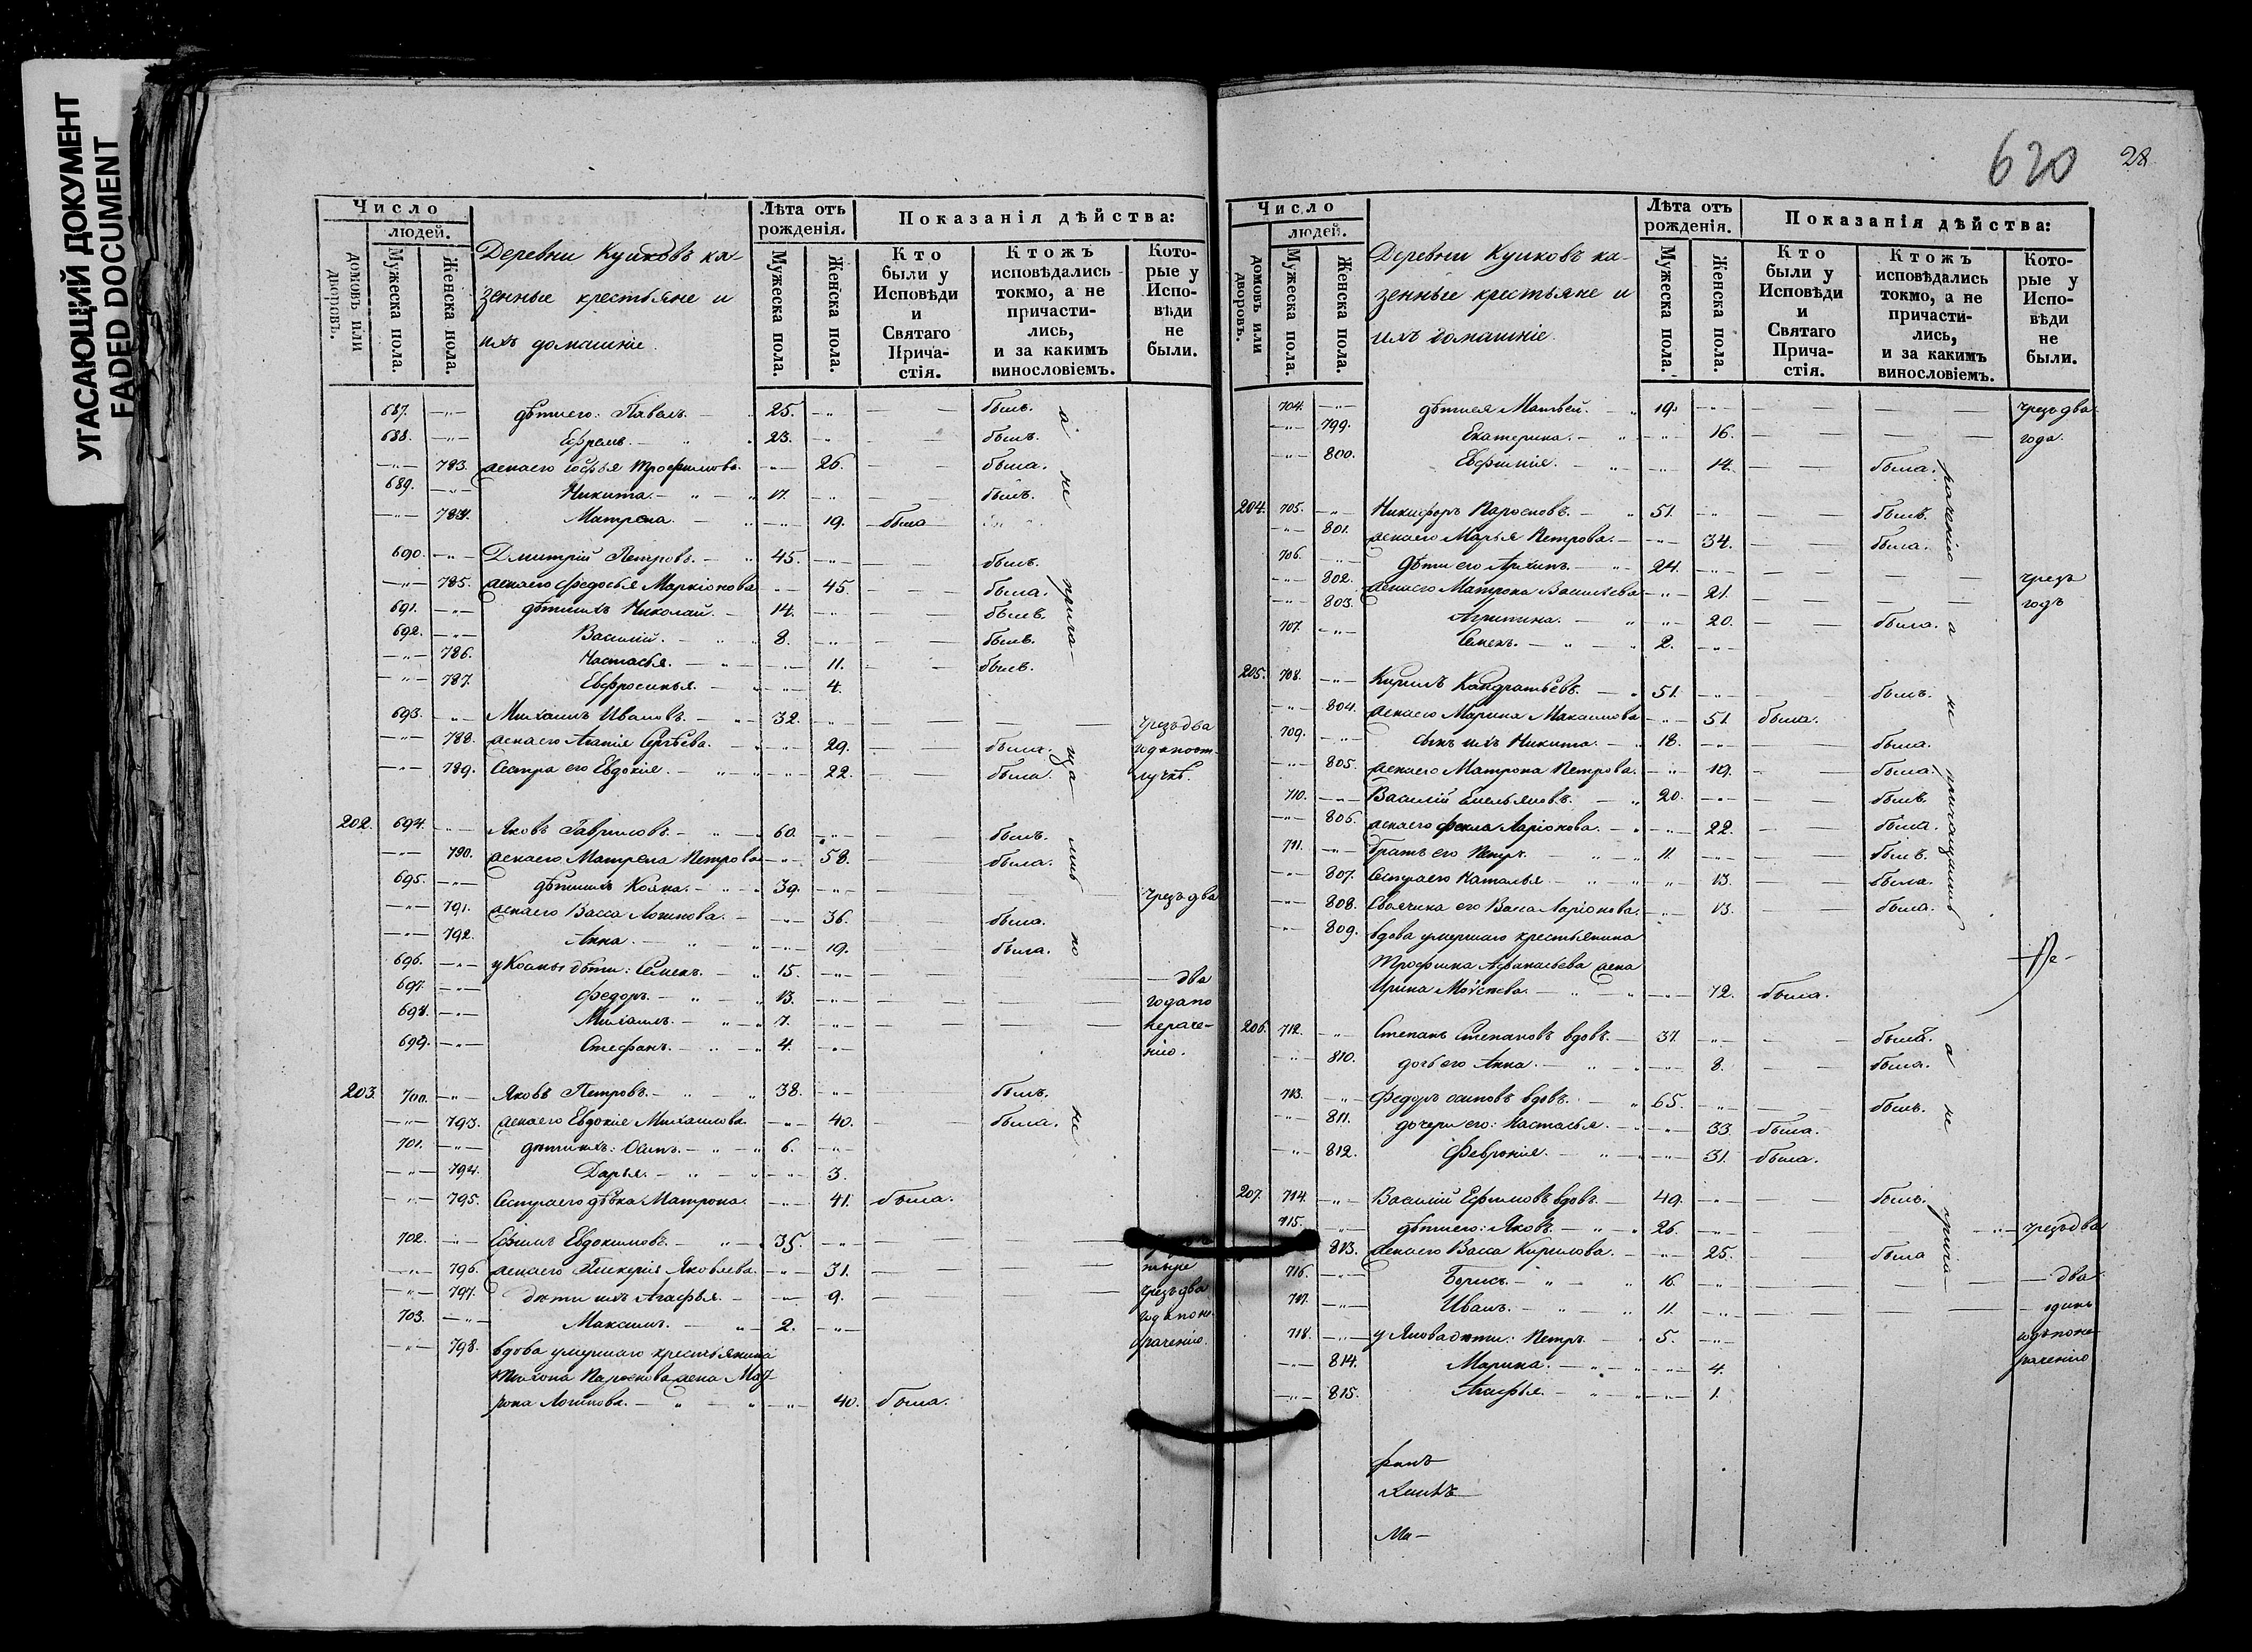 УГАСАЮЩИЙ ДОКУМЕНТ
FADED DOCUMENT
Число
людей.
домовъ или дворовъ.
Мужеска пола.
Женска пола.
Деревни Куиковъ ка-
зенные крестьяне и
ихъ домашніе.
Лѣта отъ
рожденія.
Мужеска пола.
Женска пола.
Показанія дѣйства:
Кто
были у
Исповѣди
и
Святаго
Прича-
стія.
Ктожъ
исповѣдались
токмо, а не
причасти-
лись,
и за какимъ
винословіемъ.
Кото-
рые у
Испо-
вѣди
не
были.
687. дѣти его: Павелъ. 25. былъ.
688. Ефремъ. 23. былъ.
783. жена его Софья Трофимова. 26. была.
689. Никита. 17. былъ.
784. Матрена. 19. была
690. Дмитрій Петровъ. 45. былъ.
785. жена его Федосья Маркіонова 45. была.
691. дѣти ихъ Николай. 14. былъ.
692. Василій. 8. былъ.
786. Настасья. 11. былъ.
787. Евфросинья. 4.
693. Михаилъ Ивановъ. 32. чрезъ два
788. жена его Агапія Сергѣева. 29. была.
789. Сестра его Евдокія. 22. была. лучкѣ.
202. 694. Яковъ Гавриловъ. 60. былъ.
790. жена его Матрена Петрова 58. была.
695. дѣти ихъ Козма. 39. чрезъ два
791. жена его Васса Логинова. 36. была.
792. Анна. 19. была.
696. у Козмы дѣти: Семенъ. 15. два
697. Федоръ. 13. года по
698. Михаилъ. 7. нераче-
699. Стефанъ. 4. нію.
203. 700. Яковъ Петровъ. 38. былъ.
793. жена его Евдокія Михаилова. 40. была.
701. дѣти ихъ: Осипъ. 6.
794. Дарья. 3.
795. Сестра его дѣвка Матрона. 41. была.
702. Ефимъ Евдокимовъ. 35.
796. жена его Гликерія Яковлева. 31. тыре
797. дѣти ихъ Агафья. 9. чрезъ два
703. Максимъ. 2. года по не-
798. вдова умершаго крестьянина раченію.
Тихона Парѳенова жена Мат-
рона Логинова. 40. была.
а не прича- ща- лись по не
620
28
Число
людей.
домовъ или дворовъ.
Мужеска пола.
Женска пола.
Деревни Куиковъ ка-
зенные крестьяне и
ихъ домашніе.
Лѣта отъ
рожденія.
Мужеска пола.
Женска пола.
Показанія дѣйства:
Кто
были у
Исповѣди
и
Святаго
Прича-
стія.
Ктожъ
исповѣдались
токмо, а не
причасти-
лись,
и за какимъ
винословіемъ.
Кото-
рые у
Испо-
вѣди
не
были.
704. дѣти ея Матвей. 19. чрезъ два
799. Екатерина. 16. года.
800. Евфимія. 14. была.
204. 705. Никифоръ Парѳеновъ. 51. былъ.
801. жена его Марья Петрова. 34. была.
706. Дѣти его Архипъ. 24. чрезъ
802. жена его Матрона Васильева 21. годъ
803. Агрипина. 20. была.
707. Семенъ. 2.
205. 708. Кирилъ Кондратьевъ. 51. былъ.
804. жена его Марина Максимова 51. была.
709. сынъ ихъ Никита. 18. была.
805. жена его Матрона Петрова. 19. была.
710. Василій Емельяновъ. 20. былъ.
806. жена его Фекла Ларіонова. 22. была.
711. братъ его Петръ. 11. былъ.
807. Сестра его Наталья. 13. была.
808. Своячина его Васса Ларіонова. 13. была.
809. вдова умершаго крестьянина
Трофима Афанасьева жена
Ирина Моѵсеева. 72. была.
206. 712. Степанъ Степановъ вдовъ. 37. былъ.
810. дочь его Анна. 8. была.
713. Федоръ Осиповъ вдовъ. 65. былъ.
811. дочери его: Настасья. 33. была.
812. Февронія. 31. была.
207. 714. Василій Ефимовъ вдовъ. 49. былъ.
715. дѣти его: Яковъ. 26. чрезъ два
813. жена его Васса Кирилова. 25. была
716. Борисъ. 16. два
717. Иванъ. 11. одинъ
718. у Якова дѣти: Петръ. 5. годъ по не-
814. Марина. 4. раченію
815. Агафья. 1.
раченію а не причащались а не прича-
Ма-